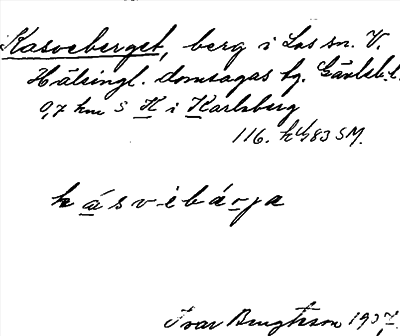 Kasveberget, berg i Los sn. V.
Hälsingl. domsagas tg. Gävleb. l.
0,7 km S K i Karlsberg
116. h 483 SM.
k á s v è b á r j a
Ivar Bengtsson 1937.